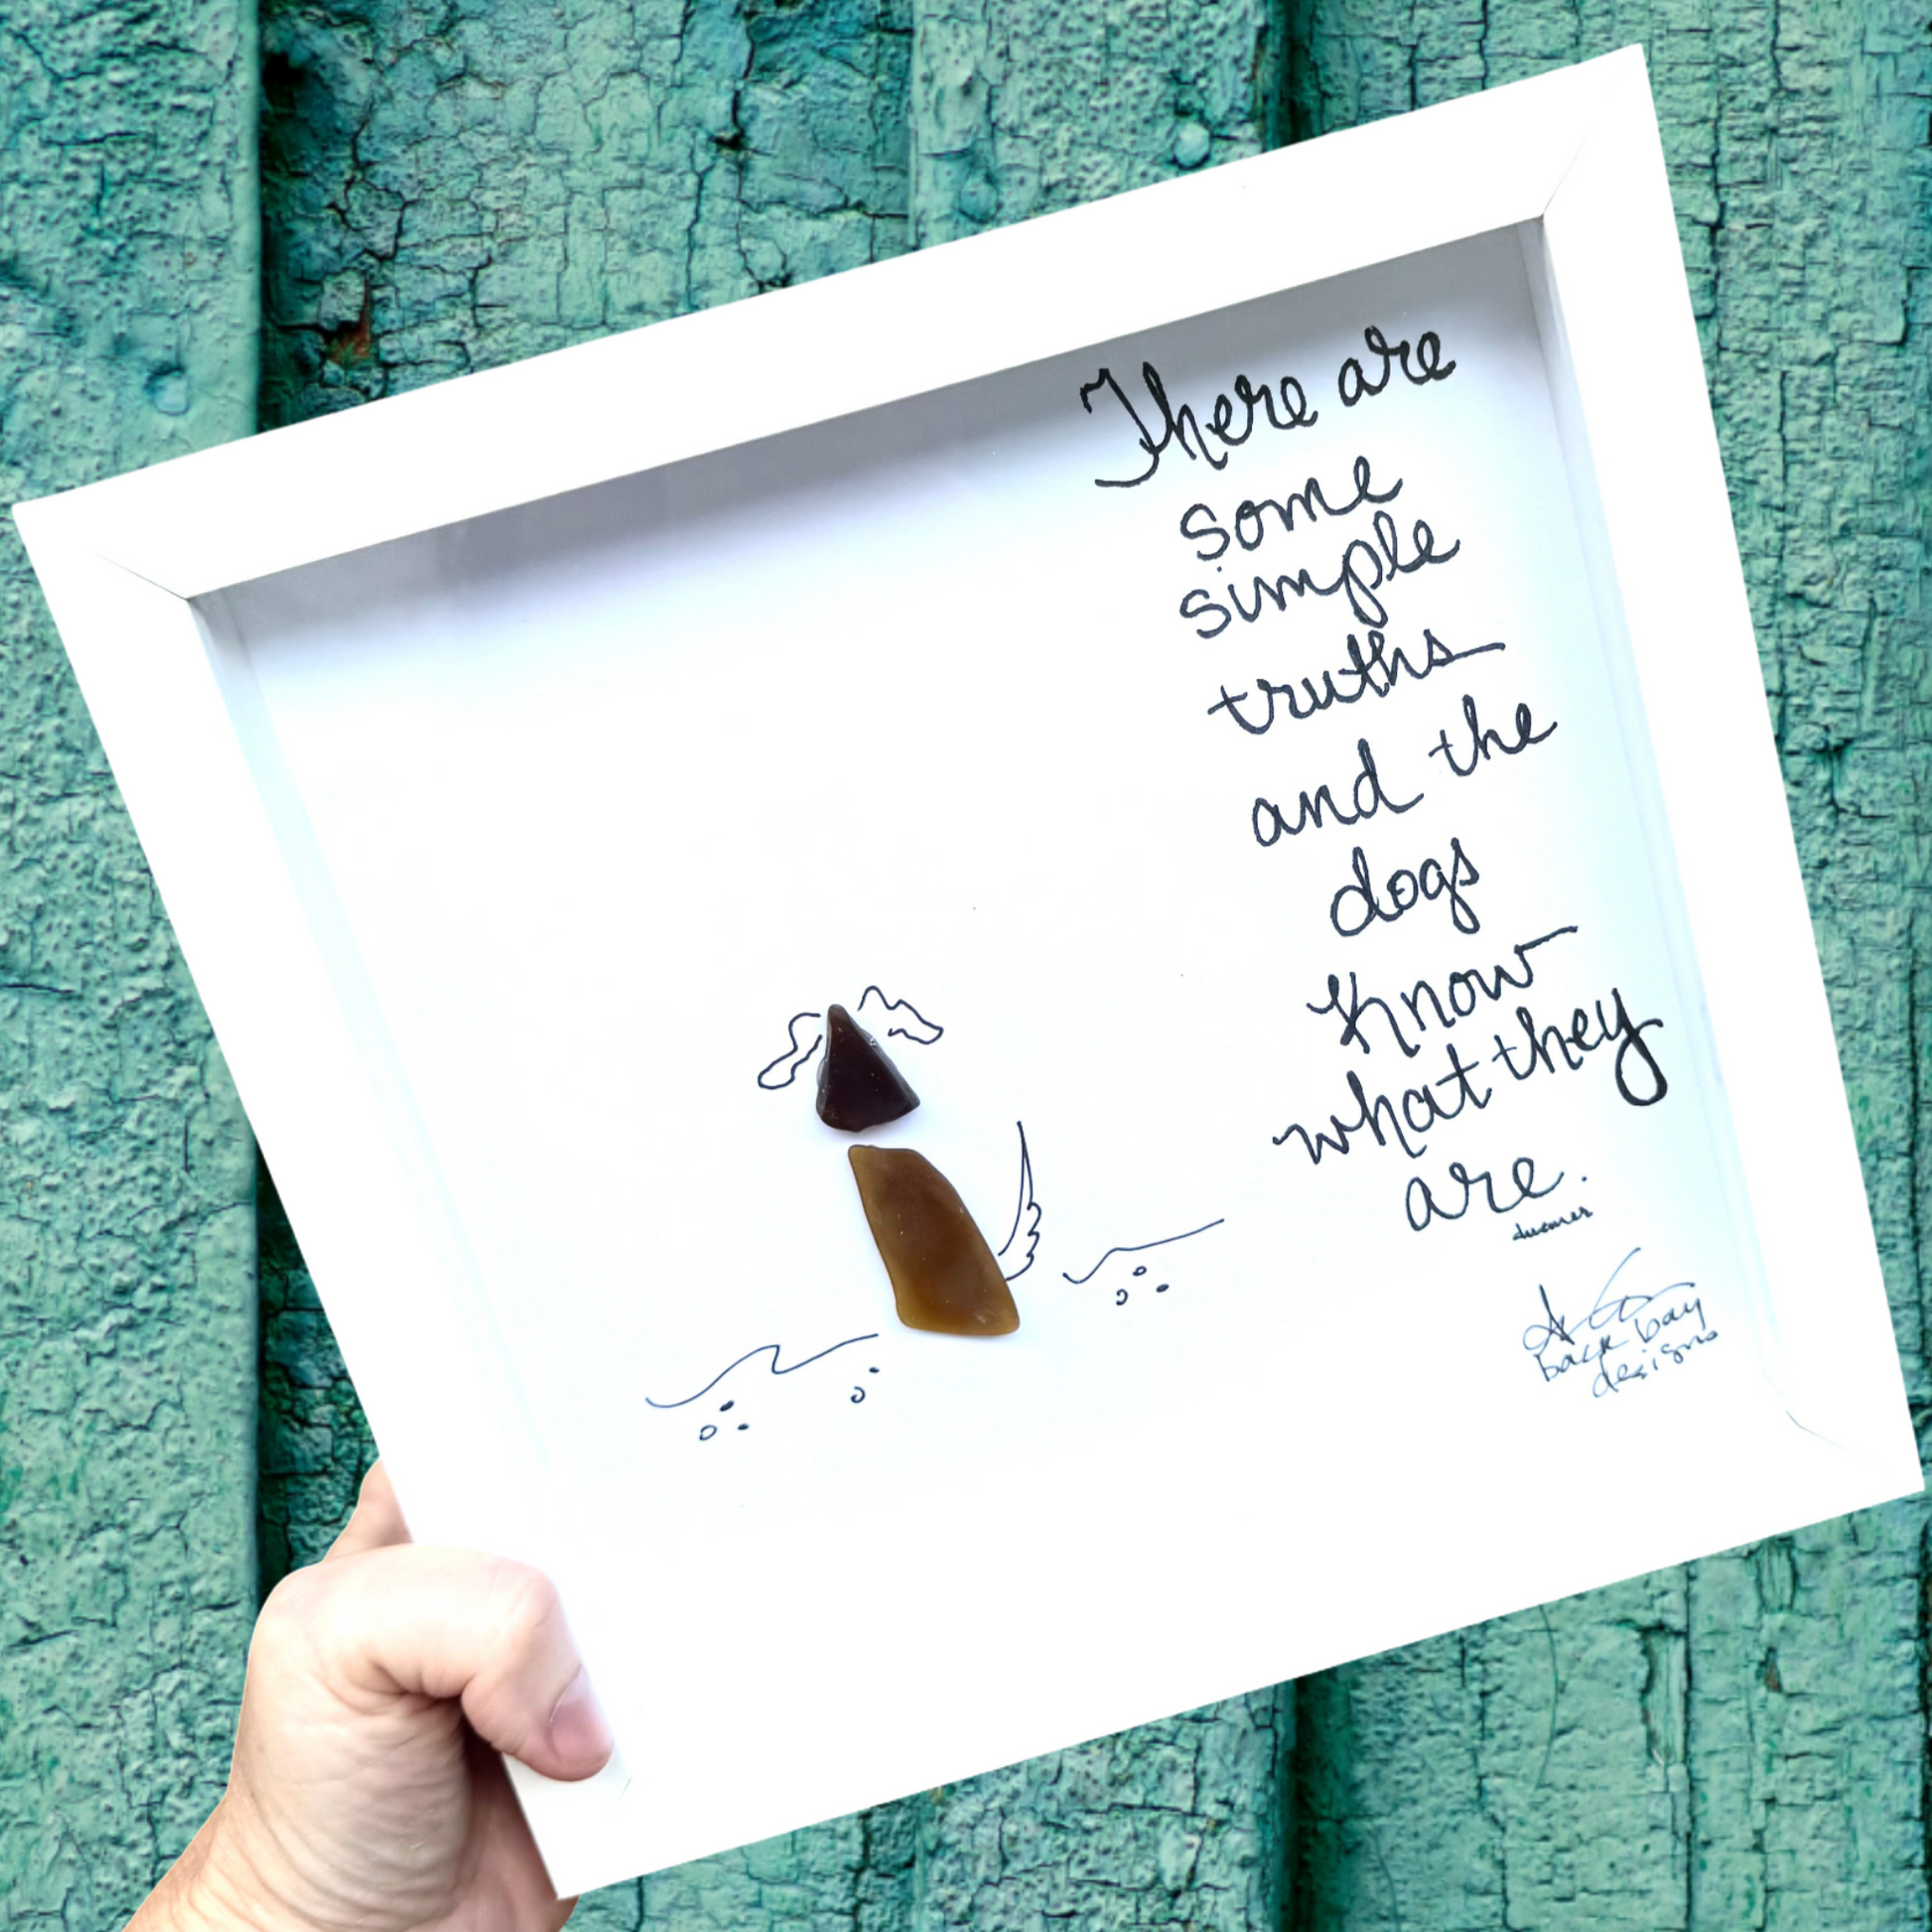 There are
some
simple
truths
and the
dogs
Know
what they
are.
back bay
designs